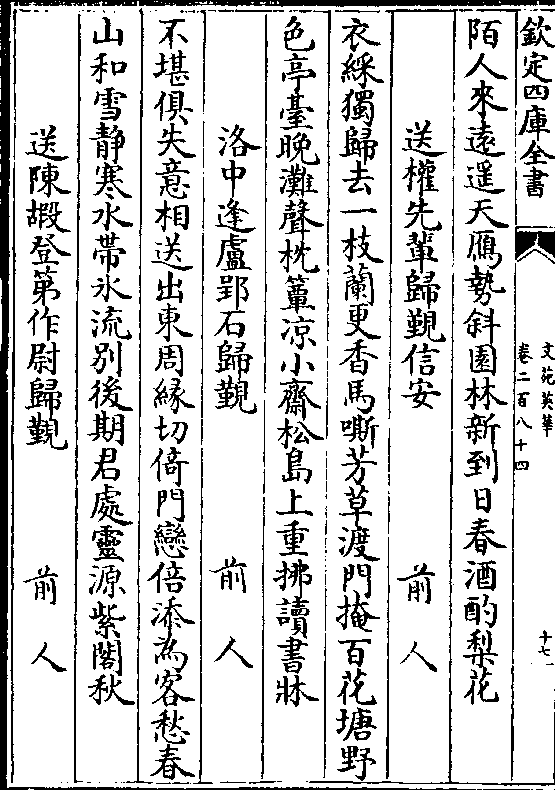 欽定四庫全書
文苑英華
卷二百八十四
十七
陌人來遠遥天鴈勢斜園林新到日春酒酌梨花
送權先輩歸覲信安
前人
衣綵獨歸去一枝蘭更香馬嘶芳草渡門掩百花塘野
色亭臺晚灘聲枕簟凉小齋松島上重拂讀書牀
洛中逢盧郢石歸覲
前人
不堪俱失意相送出東周縁切倚門戀倍添為客愁春
山和雪静寒水帶氷流别後期君處靈源紫閣秋
送陳嘏登第作尉歸覲
前人